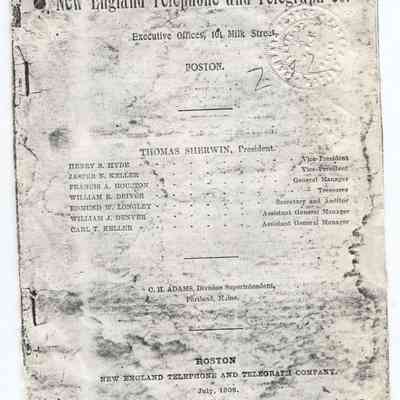 New England Telephone and Telegraph Co.
Executive Offices, 101 Milk Street,
BOSTON.
THOMAS SHERWIN, President.
HENRY S. HYDE Vice-President
JASPER N. KELLER Vice-President
FRANCIS A. HOUSTON General Manager
WILLIAM R. DRIVER Treasurer
EDMUND W. LONGLEY Secretary and Auditor
WILLIAM J. DENVER Assistant General Manager
CARL T. KELLER Assistant General Manager
C. H. ADAMS, Division Superintendent,
Portland, Maine.
BOSTON
NEW ENGLAND TELEPHONE AND TELEGRAPH COMPANY.
July, 1908.